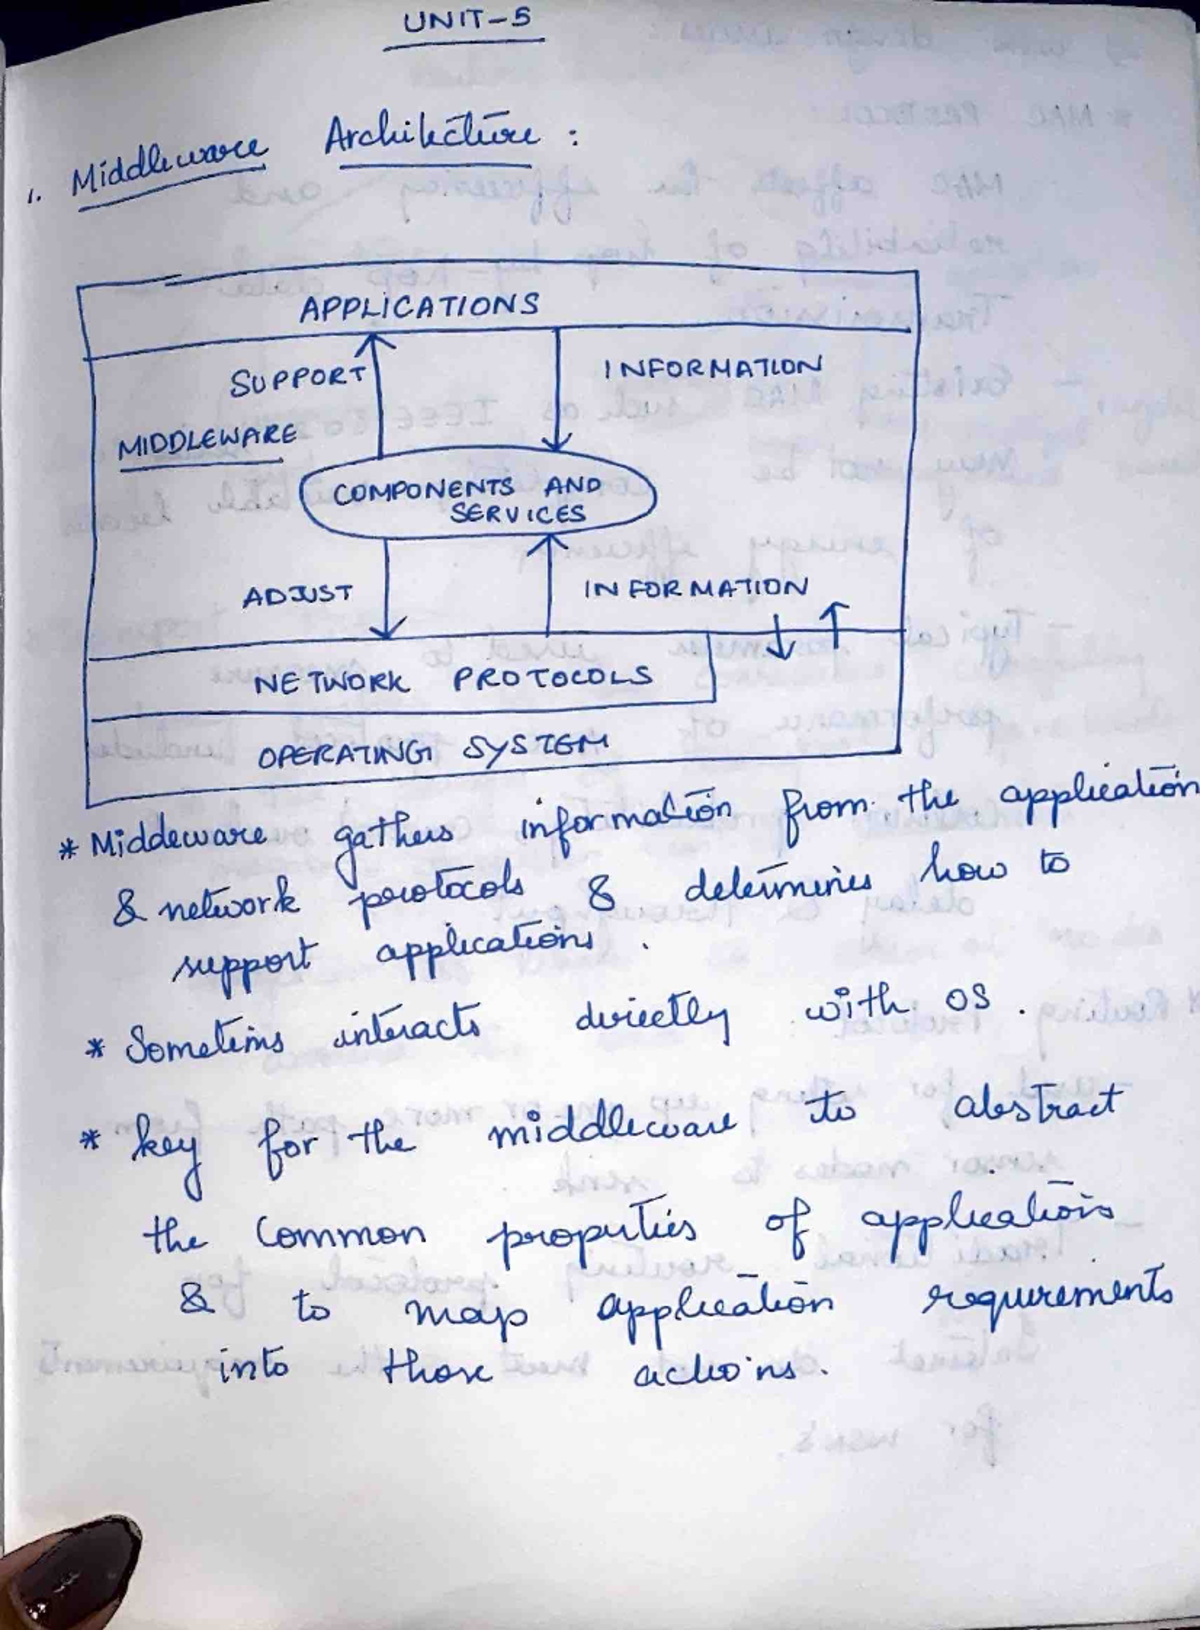 UNIT-5
1. Middleware Architecture :
APPLICATIONS
SUPPORT
INFORMATION
MIDDLEWARE
COMPONENTS AND
SERVICES
ADJUST
INFORMATION
NETWORK PROTOCOLS
OPERATING SYSTEM
* Middeware gathers information from the application
& network protocols & determines how to
support applications .
* Sometims interacts directly with OS .
* key for the middleware to abstract
the common properties of applications
& to map application requirements
into those actions.